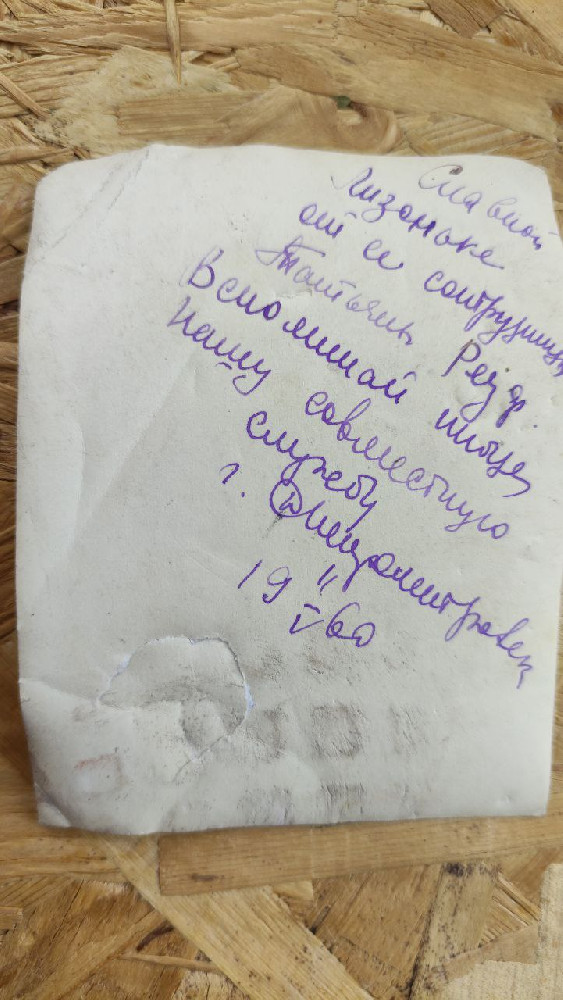 Славной
Лизоньке
от ее сотрудницы
Татьяны
Вспоминай иногда
нашу совместную
службу
г. Днепропетровск
19 V 60